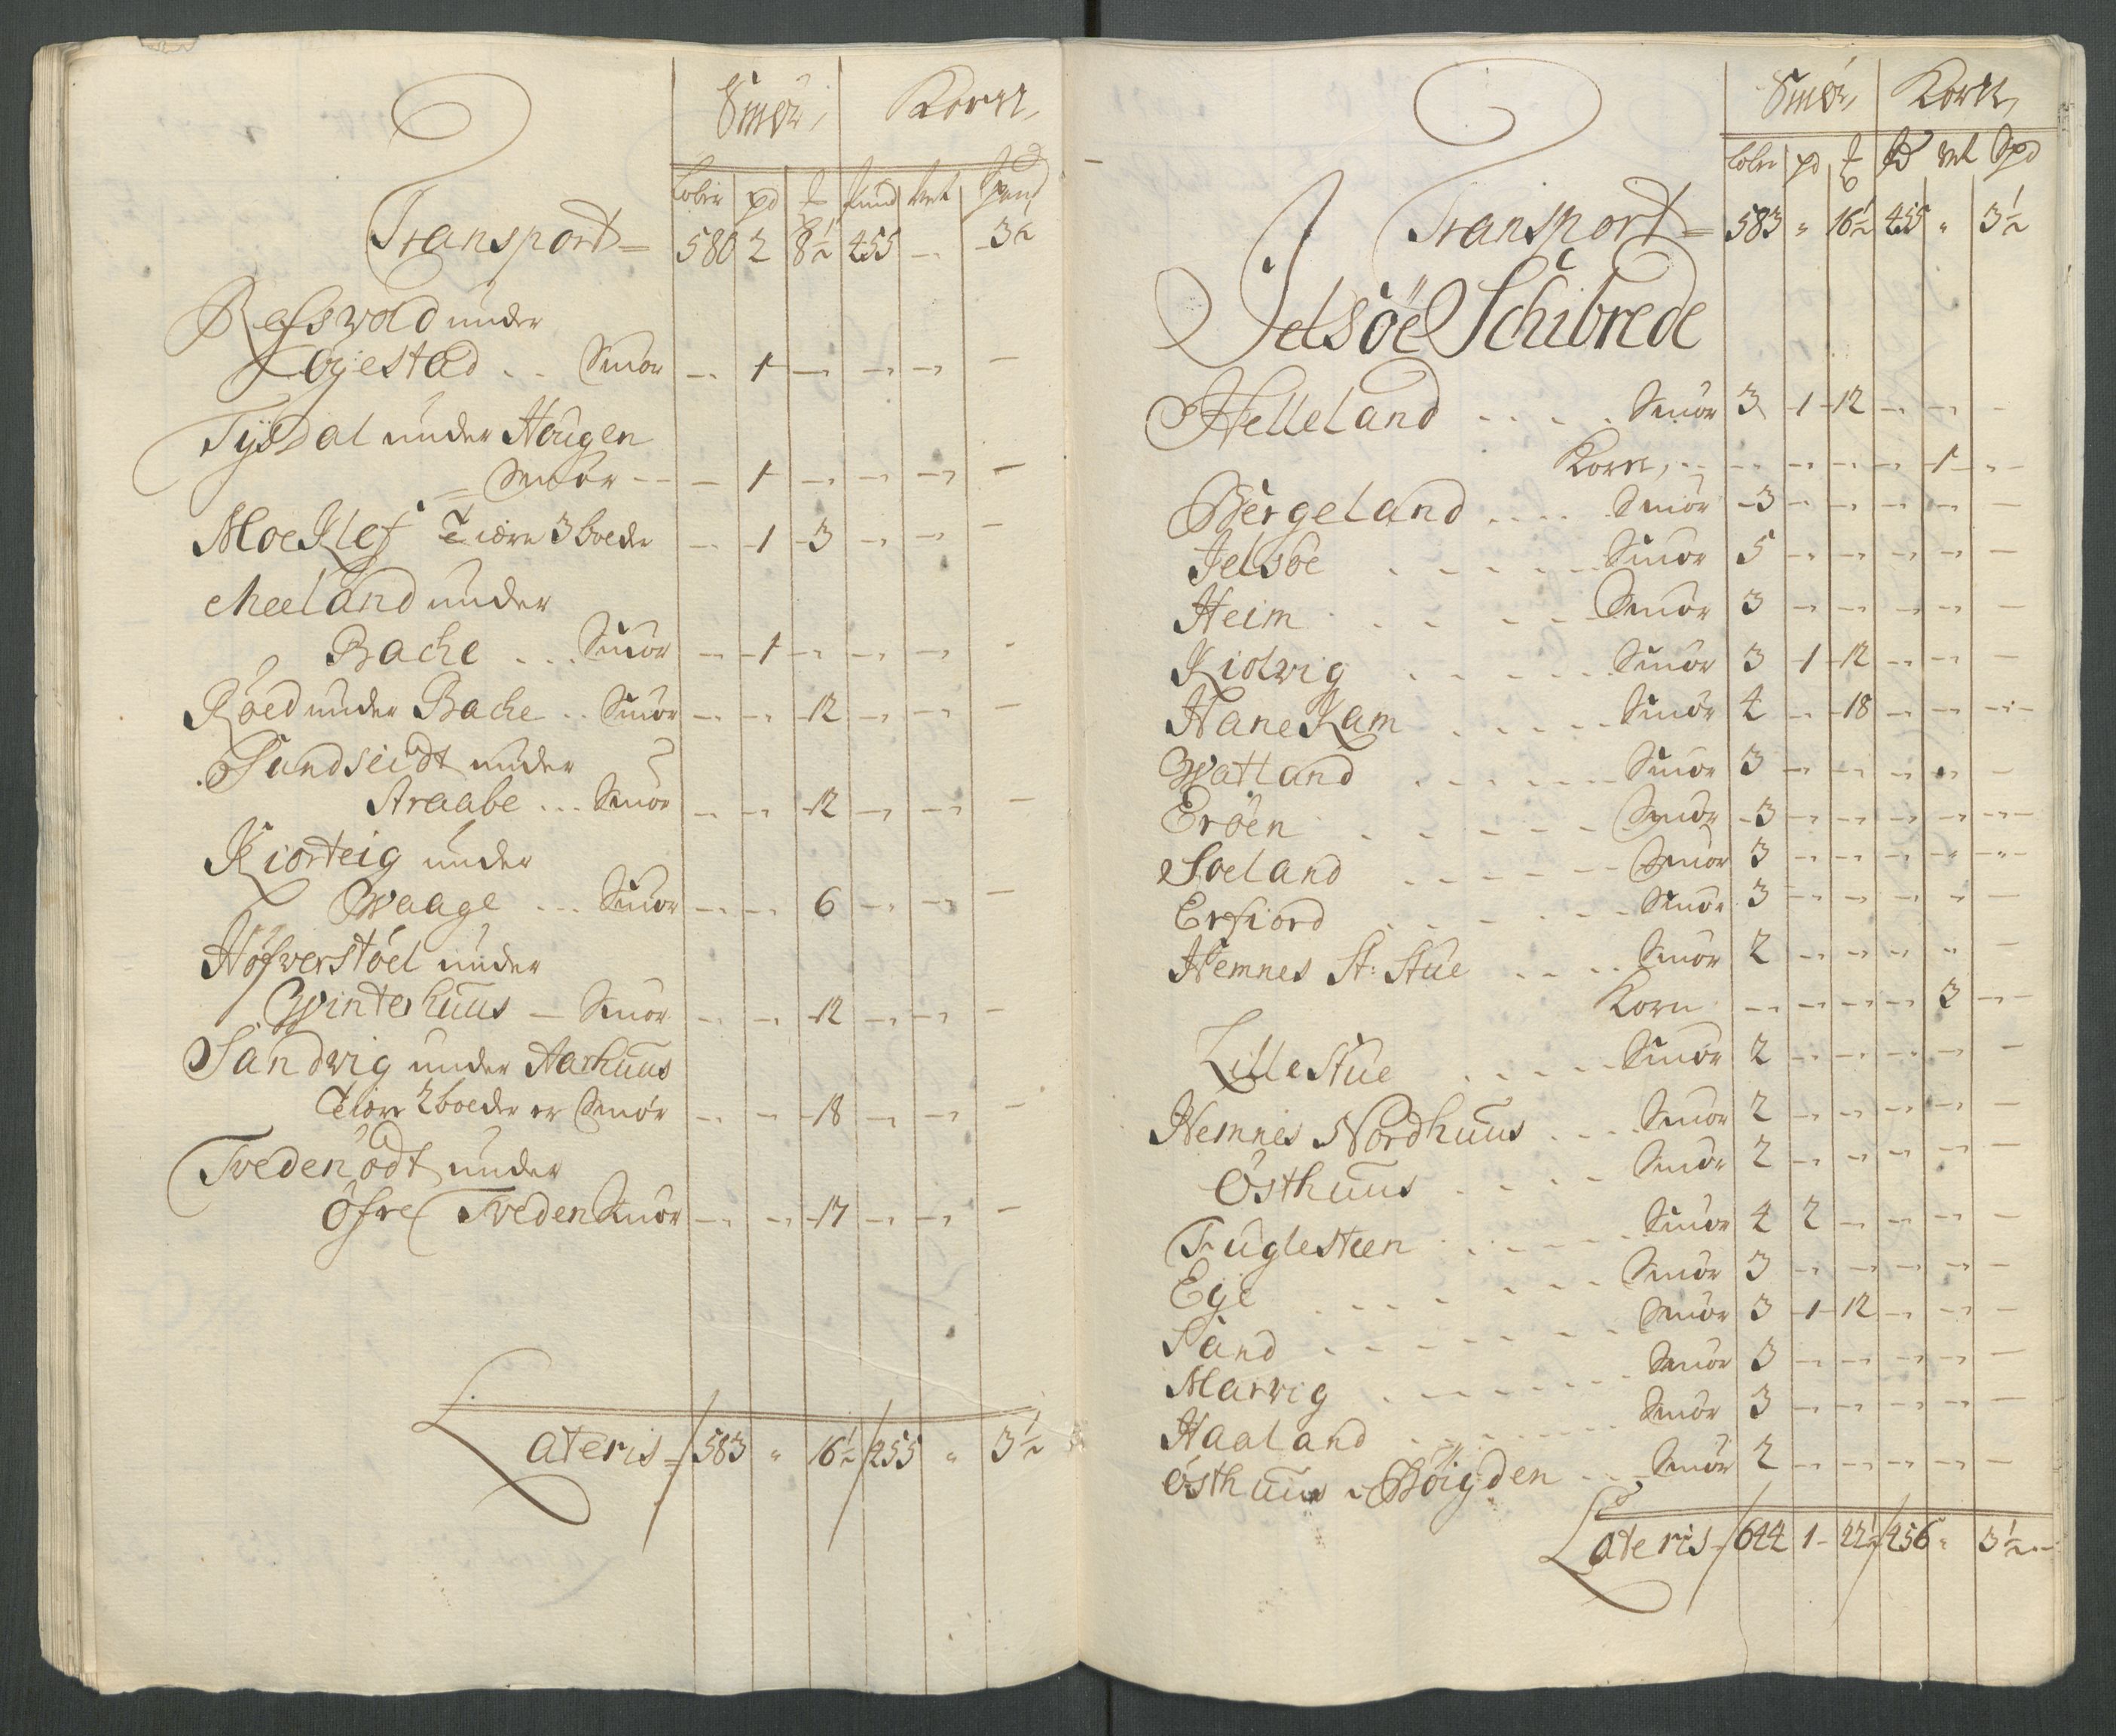 Smør, Korn,
Løber pd ℔ Pund Vet Spand
Transport= 580 2 8½ 455 — 3½
Refsvold under
Øyestad .. Smør — 1 — — — —
Tysdal under Hougen
= Smør — — 1 — — — —
Moe Klef Tiære 3 boeder — 1 3 — — —
Meeland under
Bache ... Smør — 1 — — — —
Röed under Bache .. Smør — — 12 — — —
Sundseidt under
Straabe ... Smør — — 12 — — —
Kiorteig under
Waage ... Smør — — 6 — — —
Höfverstöel under
Winterhuus — Smør — — 12 — — —
Sandvig under Aarhuus
Tiære 2 boeder er Smør — — 18 — — —
Tvedenödt under
Öfre Tveden Smør — — 17 — — —
Lateris= 583 " 16½ 455 " 3½
Smør, Korn,
Løber pd ℔ Pd Vet Spd
Transport= 583 " 16½ 455 " 3½
Jelsöe Schibrede
Helleland .... Smør 3 1 12 — — —
Korn, .. — — — — 1 —
Bergeland .... Smør 3 — — — — —
Jelsöe ..... Smør 5 — — — — —
Heim .... Smør 3 — — — — —
Kiolvig ..... Smør 3 1 12 — — —
Hane Kam .... Smør 4 — 18 — — —
Watland ..... Smør 3 — — — — —
Eröen ..... Smør 3 — — — — —
Soeland ..... Smør 3 — — — — —
Erfiord ..... Smør 3 — — — — —
Hemnes St: Stue .... Smør 2 — — — — —
Korn — — — — 3 —
Lille Stue ..... Smør 2 — — — — —
Hemnes Nordhuus ... Smør 2 — — — — —
Östhuus .... Smør 2 — — — — —
Fuglesteen ..... Smør 4 2 — — — —
Eye ...... Smør 3 — — — — —
Sand ...... Smør 3 1 12 — — —
Marvig ...... Smør 3 — — — — —
Haaland ...... Smør 3 — — — — —
Östhuus i Böigden ... Smør 2 — — — — —
Lateris= 644 1 22½ 456 " 3½